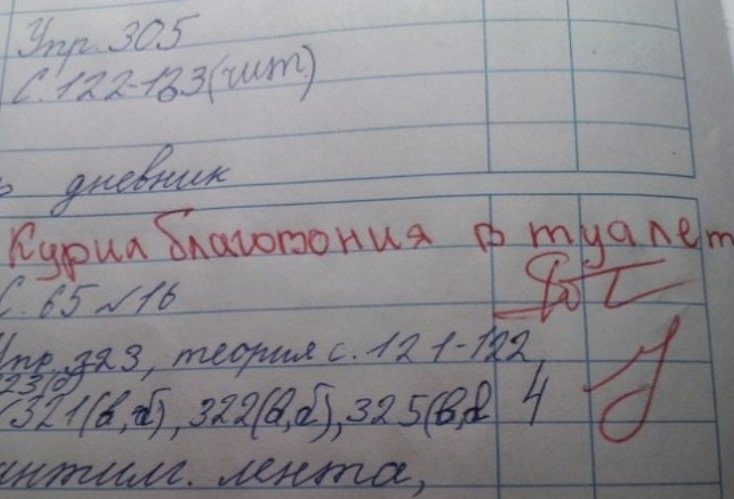 Упр. 305
С. 122-123 (чит)
дневник
Курил благовония в туалет
С. 65 №16
Упр. 323, теория с. 121-122,
23(б)
321(в,г), 322(в,г), 325(в,г
4
нтил. лента,